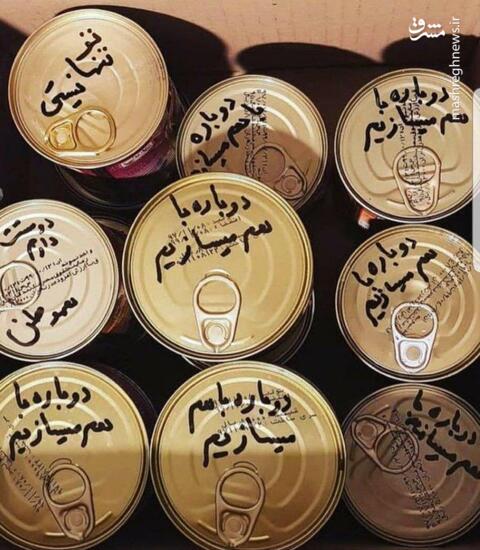 مشرق
mashreghnews.ir
تو
تنها
نیستی
دوباره
با هم میسازیم
دوباره با
هم میسازیم
دوستت
دارم
هموطن
دوباره با
هم میسازیم
دوباره با
هم میسازیم
دوباره با
هم میسازیم
دوباره باهم
میسازیم
دوباره با
هم میسازیم